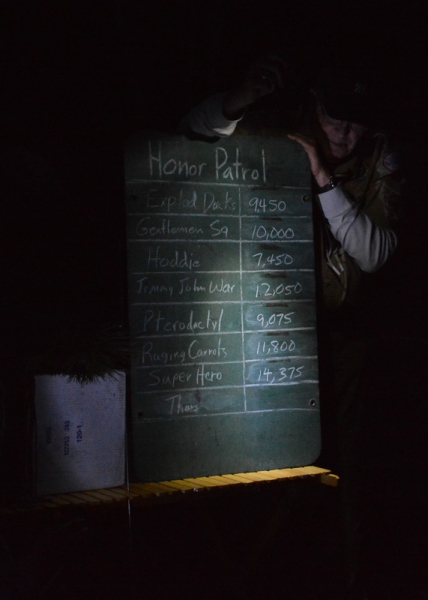 Honor Patrol
Explod Ducks 9,450
Gentlemen Sq 10,000
Hoddie 7,450
Jimmy John War 12,050
Pterodactyl 9,075
Raging Carrots 11,800
Super Hero 14,375